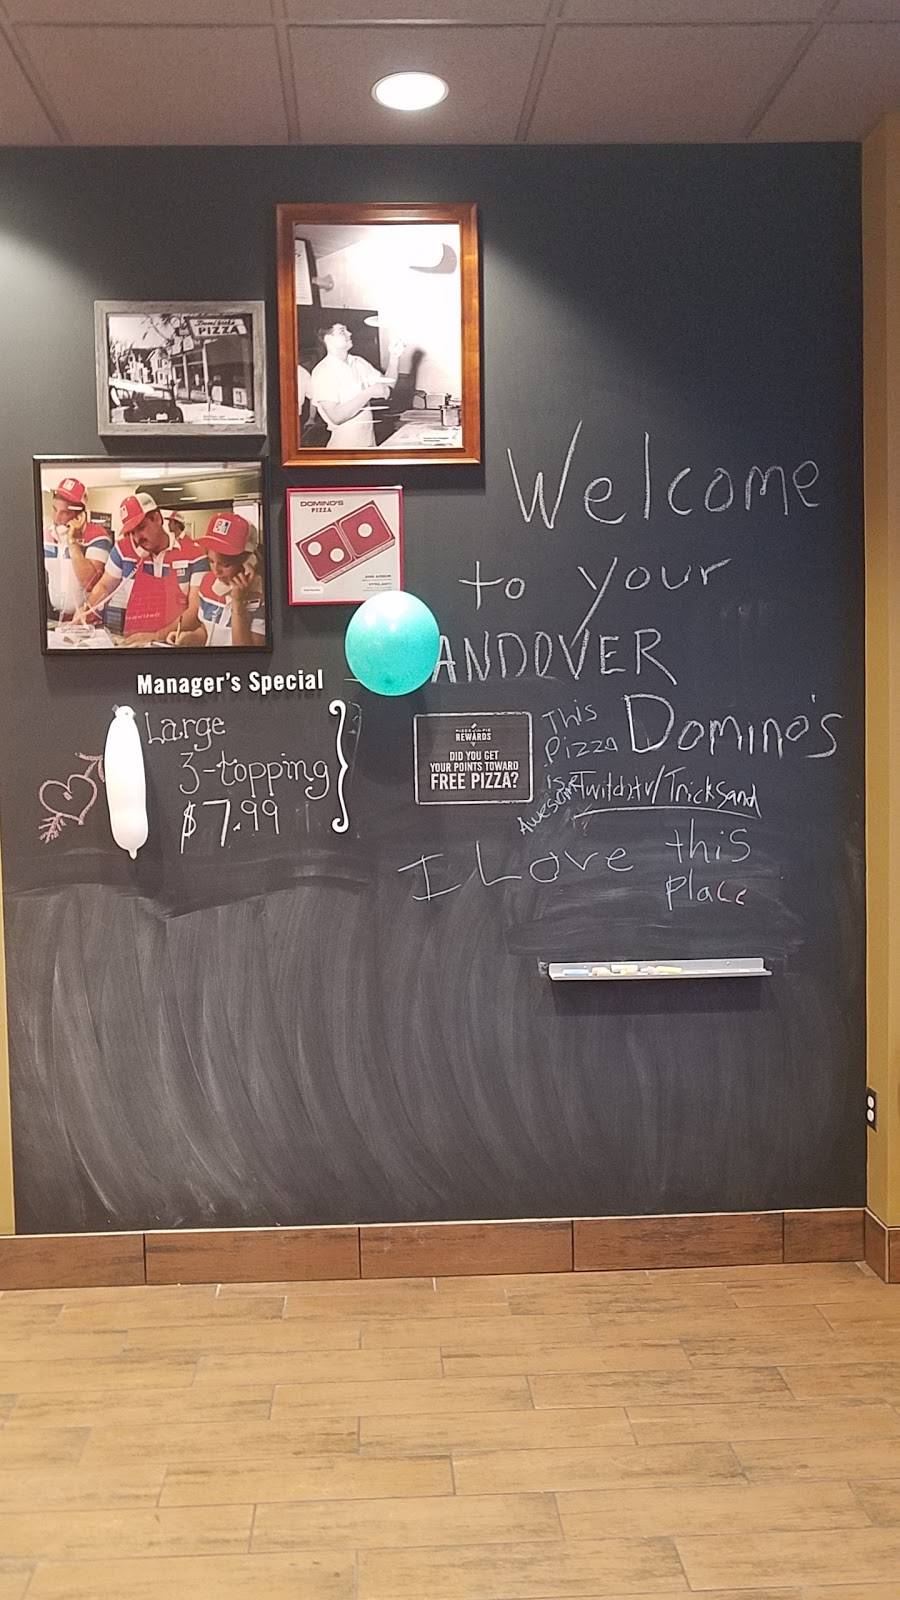 PIZZA
DOMINO'S
PIZZA
Welcome
to your
ANDOVER
Domino's
Manager's Special
Large
3-topping
$7.99
REWARDS
DID YOU GET
YOUR POINTS TOWARD
FREE PIZZA?
This
Pizza
is
Awesome
Twitch.tv/TrickSand
I Love this
place